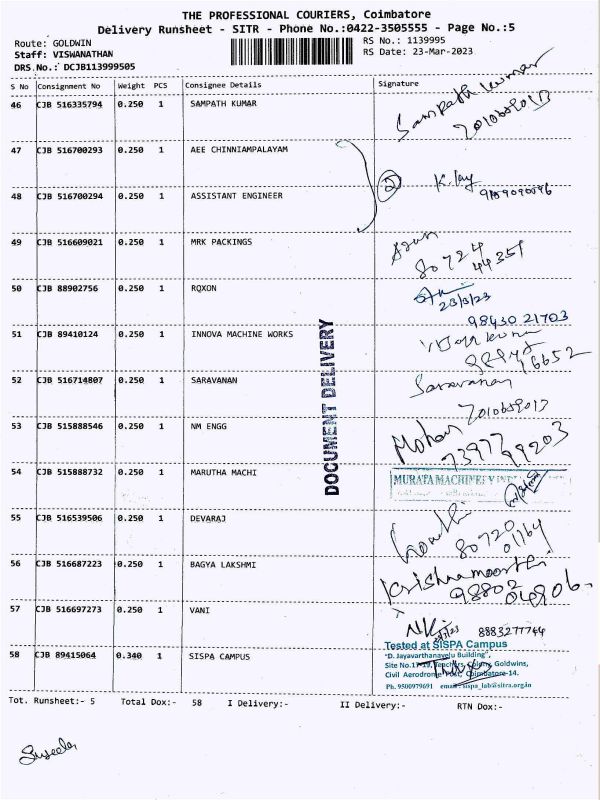 THE PROFESSIONAL COURIERS, Coimbatore
Delivery Runsheet - SITR - Phone No.:0422-3505555 - Page No.:5
Route: GOLDWIN
RS No.: 1139995
Staff: VISWANATHAN
RS Date: 23-Mar-2023
DRS No.: DCJB113999505
S No Consignment No Weight PCS Consignee Details Signature
46 CJB 516335794 0.250 1 SAMPATH KUMAR Sampath kumar
47 CJB 516700293 0.250 1 AEE CHINNIAMPALAYAM
48 CJB 516700294 0.250 1 ASSISTANT ENGINEER
2
49 CJB 516609021 0.250 1 MRK PACKINGS
80724
44351
50 CJB 88902756 0.250 1 RQXON
23/3/23
98430 21703
51 CJB 89410124 0.250 1 INNOVA MACHINE WORKS
16652
52 CJB 516714807 0.250 1 SARAVANAN Saravanan
DOCUMENT DELIVERY
53 CJB 515888546 0.250 1 NM ENGG Mohan
73977
99203
54 CJB 515888732 0.250 1 MARUTHA MACHI
MURATA MACHINERY
55 CJB 516539506 0.250 1 DEVARAJ
80720
01164
56 CJB 516687223 0.250 1 BAGYA LAKSHMI Krishnamoorthi
98802
04806
57 CJB 516697273 0.250 1 VANI
8883277744
58 CJB 89415064 0.340 1 SISPA CAMPUS
Tested at SISPA Campus
"D. Jayavarthanavelu Building",
Site No.17-19, Teachers Colony, Goldwins,
Civil Aerodrome Post, Coimbatore-14.
Ph. 9500979691 email: sispa_lab@sitra.org.in
Tot. Runsheet:- 5 Total Dox:- 58 I Delivery:- II Delivery:- RTN Dox:-